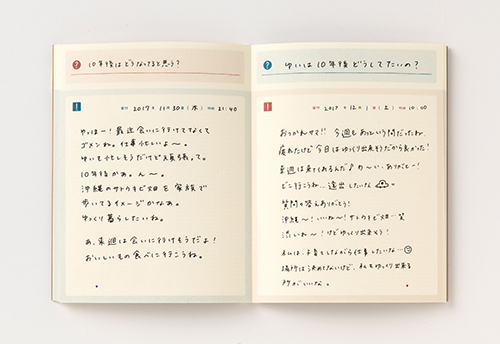 10年後はどうなってると思う?
2017年11月30日(木) 21:40
やっほー!最近会いに行けてなくて
ゴメンね。仕事忙しいよ〜。
ゆいも忙しそうだけど頑張って。
10年後かぁ。ん〜。
沖縄のサトウキビ畑を家族で
歩いてるイメージかなぁ。
ゆっくり暮らしたいね。
あ、来週は会いに行けそうだよ!
おいしいもの食べに行こうね。
ゆいは10年後どうしてたいの?
2017年12月1日(土) 10:00
おつかれさま!!今週もあっという間だったね。
疲れたけど今日はゆっくり出来そうだから良かった!
来週は来てくれるんだ♪わ〜い、ありがと〜!
どこ行こうね…遠出したいな
質問の答えありがとう!
沖縄〜!いいね〜!サトウキビ畑…笑
渋いね〜!けどゆっくり出来そう!
私は、子育てしながら仕事したいな…
場所は決めてないけど、私もゆっくり出来る
所がいいな。